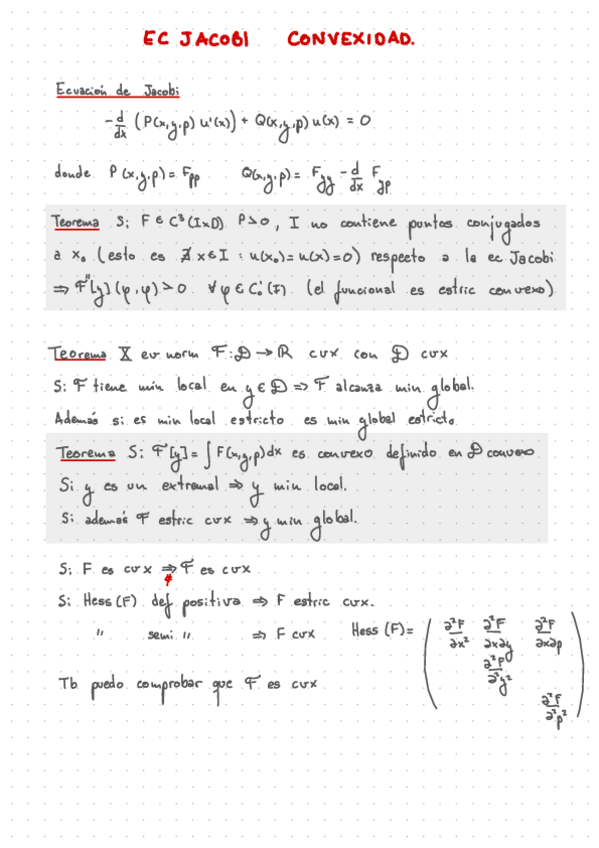 EC JACOBI CONVEXIDAD.
Ecuación de Jacobi
-d/dx (P(x,y,p) u'(x)) + Q(x,y,p) u(x) = 0
donde P(x,y,p) = Fpp Q(x,y,p) = Fyy - d/dx Fyp
Teorema Si F ∈ C³(I×D) P>0, I no contiene puntos conjugados
a x₀ (esto es ∄ x∈I : u(x₀)=u(x)=0) respecto a la ec Jacobi
⇒ F''[y](φ,φ) > 0 ∀φ∈C₀¹(I) (el funcional es estric convexo)
Teorema X ev norm F: D → R cvx con D cvx
Si F tiene min local en y∈D ⇒ F alcanza min global.
Además si es min local estricto es min global estricto.
Teorema Si F[y] = ∫ F(x,y,p)dx es convexo definido en D convexo
Si y es un extremal ⇒ y min local.
Si además F estric cvx ⇒ y min global.
Si F es cvx ⇒ F es cvx
Si Hess(F) def positiva ⇒ F estric cvx.
" semi " ⇒ F cvx
Hess(F) = ( ∂²F/∂x² ∂²F/∂x∂y ∂²F/∂x∂p
∂²F/∂²y²
∂²F/∂²p² )
Tb puedo comprobar que F es cvx